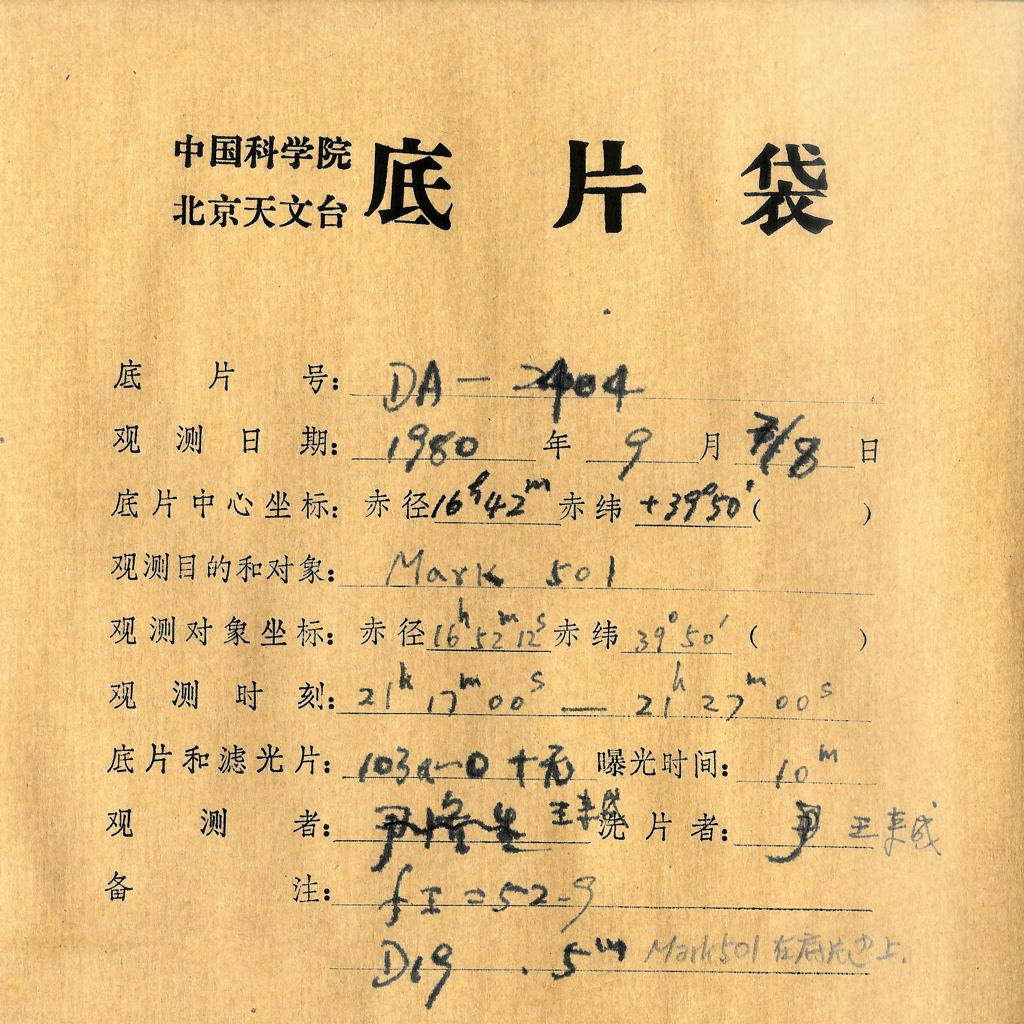 中国科学院
北京天文台
底片袋
底片号: DA-2404
观测日期: 1980年9月7/8日
底片中心坐标: 赤径16h42m赤纬+39°50′( )
观测目的和对象: Mark 501
观测对象坐标: 赤径16h52m12s赤纬39°50′( )
观测时刻: 21h17m00s — 21h27m00s
底片和滤光片: 103a-O+无 曝光时间: 10m
观测者: 尹 生 王来 洗片者: 尹 王来成
备注: f工=52.9
D19 . 5m Mark501在底片边上.